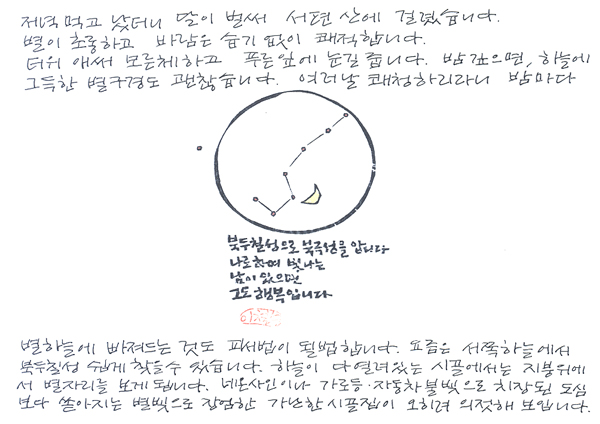 저녁 먹고 났더니 달이 벌써 서편 산에 걸렸습니다.
별이 초롱하고 바람은 습기 없이 쾌적합니다.
더위 애써 모른체하고 푸른잎에 눈길 줍니다. 밤 깊으면, 하늘에
그득한 별구경도 괜찮습니다. 여러날 쾌청하리라니 밤마다
북두칠성으로 북극성을 압니다
나로하여 빛나는
남이 있으면
그도 행복입니다
별하늘에 빠져드는 것도 피서법이 될법합니다. 요즘은 서쪽하늘에서
북두칠성 쉽게 찾을수 있습니다. 하늘이 다 열려있는 시골에서는 지붕위에
서 별자리를 보게 됩니다. 네온사인이나 가로등·자동차불빛으로 치장된 도심
보다 쏟아지는 별빛으로 장엄한 가난한 시골집이 오히려 의젓해 보입니다.